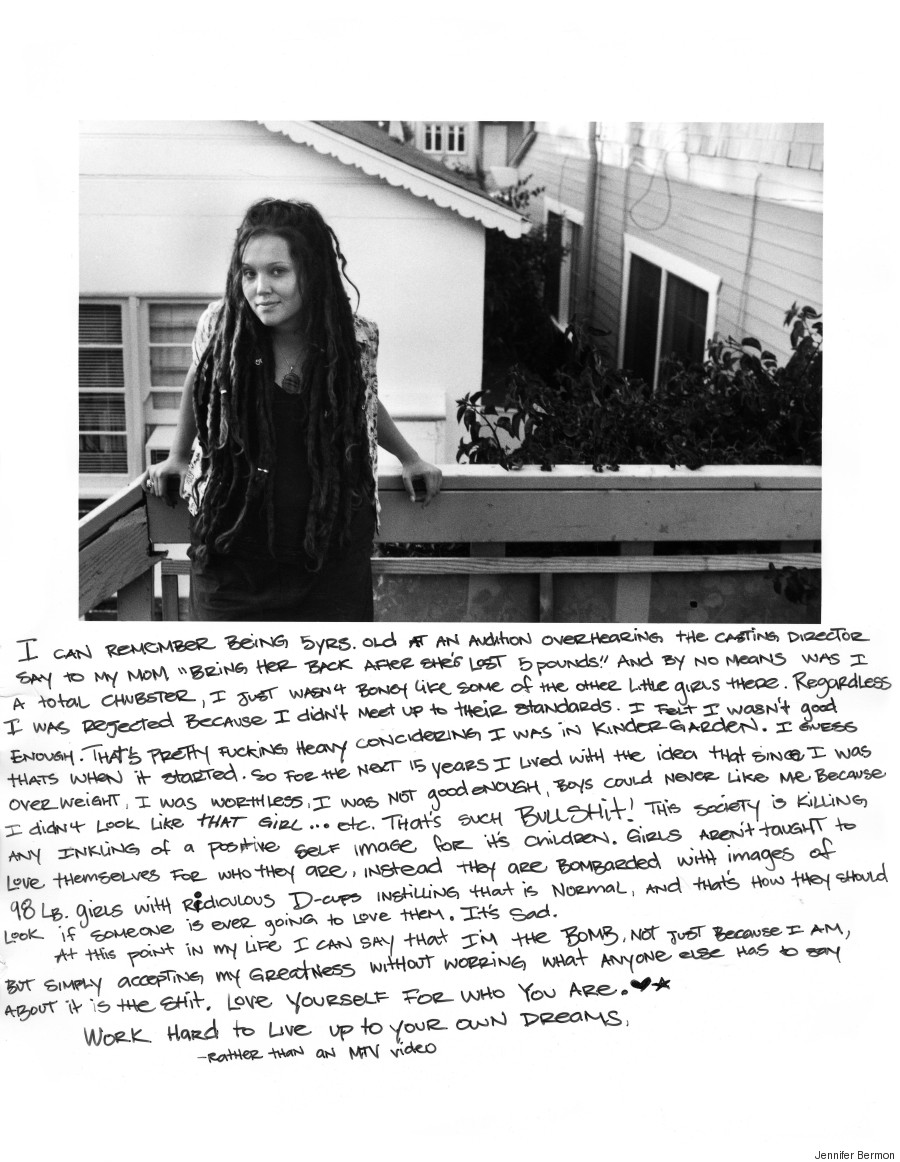 I CAN REMEMBER BEING 5YRS. OLD AT AN AUDITION OVERHEARING THE CASTING DIRECTOR
SAY TO MY MOM, "BRING HER BACK AFTER SHE'S LOST 5 POUNDS." AND BY NO MEANS WAS I
A TOTAL CHUBSTER, I JUST WASN'T BONEY LIKE SOME OF THE OTHER LITTLE GIRLS THERE. REGARDLESS
I WAS REJECTED BECAUSE I DIDN'T MEET UP TO THEIR STANDARDS. I FELT I WASN'T GOOD
ENOUGH. THAT'S PRETTY FUCKING HEAVY CONCIDERING I WAS IN KINDERGARDEN. I GUESS
THATS WHEN IT STARTED. SO FOR THE NEXT 15 YEARS I LIVED WITH THE IDEA THAT SINCE I WAS
OVERWEIGHT, I WAS WORTHLESS, I WAS NOT GOOD ENOUGH, BOYS COULD NEVER LIKE ME BECAUSE
I DIDN'T LOOK LIKE THAT GIRL... ETC. THAT'S SUCH BULLSHIT! THIS SOCIETY IS KILLING
ANY INKLING OF A POSITIVE SELF IMAGE FOR IT'S CHILDREN. GIRLS AREN'T TAUGHT TO
LOVE THEMSELVES FOR WHO THEY ARE, INSTEAD THEY ARE BOMBARDED WITH IMAGES OF
98 LB. GIRLS WITH RIDICULOUS D-CUPS INSTILLING THAT IS NORMAL, AND THAT'S HOW THEY SHOULD
LOOK IF SOMEONE IS EVER GOING TO LOVE THEM. IT'S SAD.
AT THIS POINT IN MY LIFE I CAN SAY THAT I'M THE BOMB, NOT JUST BECAUSE I AM,
BUT SIMPLY ACCEPTING MY GREATNESS WITHOUT WORRING WHAT ANYONE ELSE HAS TO SAY
ABOUT IT IS THE SHIT. LOVE YOURSELF FOR WHO YOU ARE. ♥★
WORK HARD TO LIVE UP TO YOUR OWN DREAMS,
-RATHER THAN AN MTV VIDEO
Jennifer Bermon